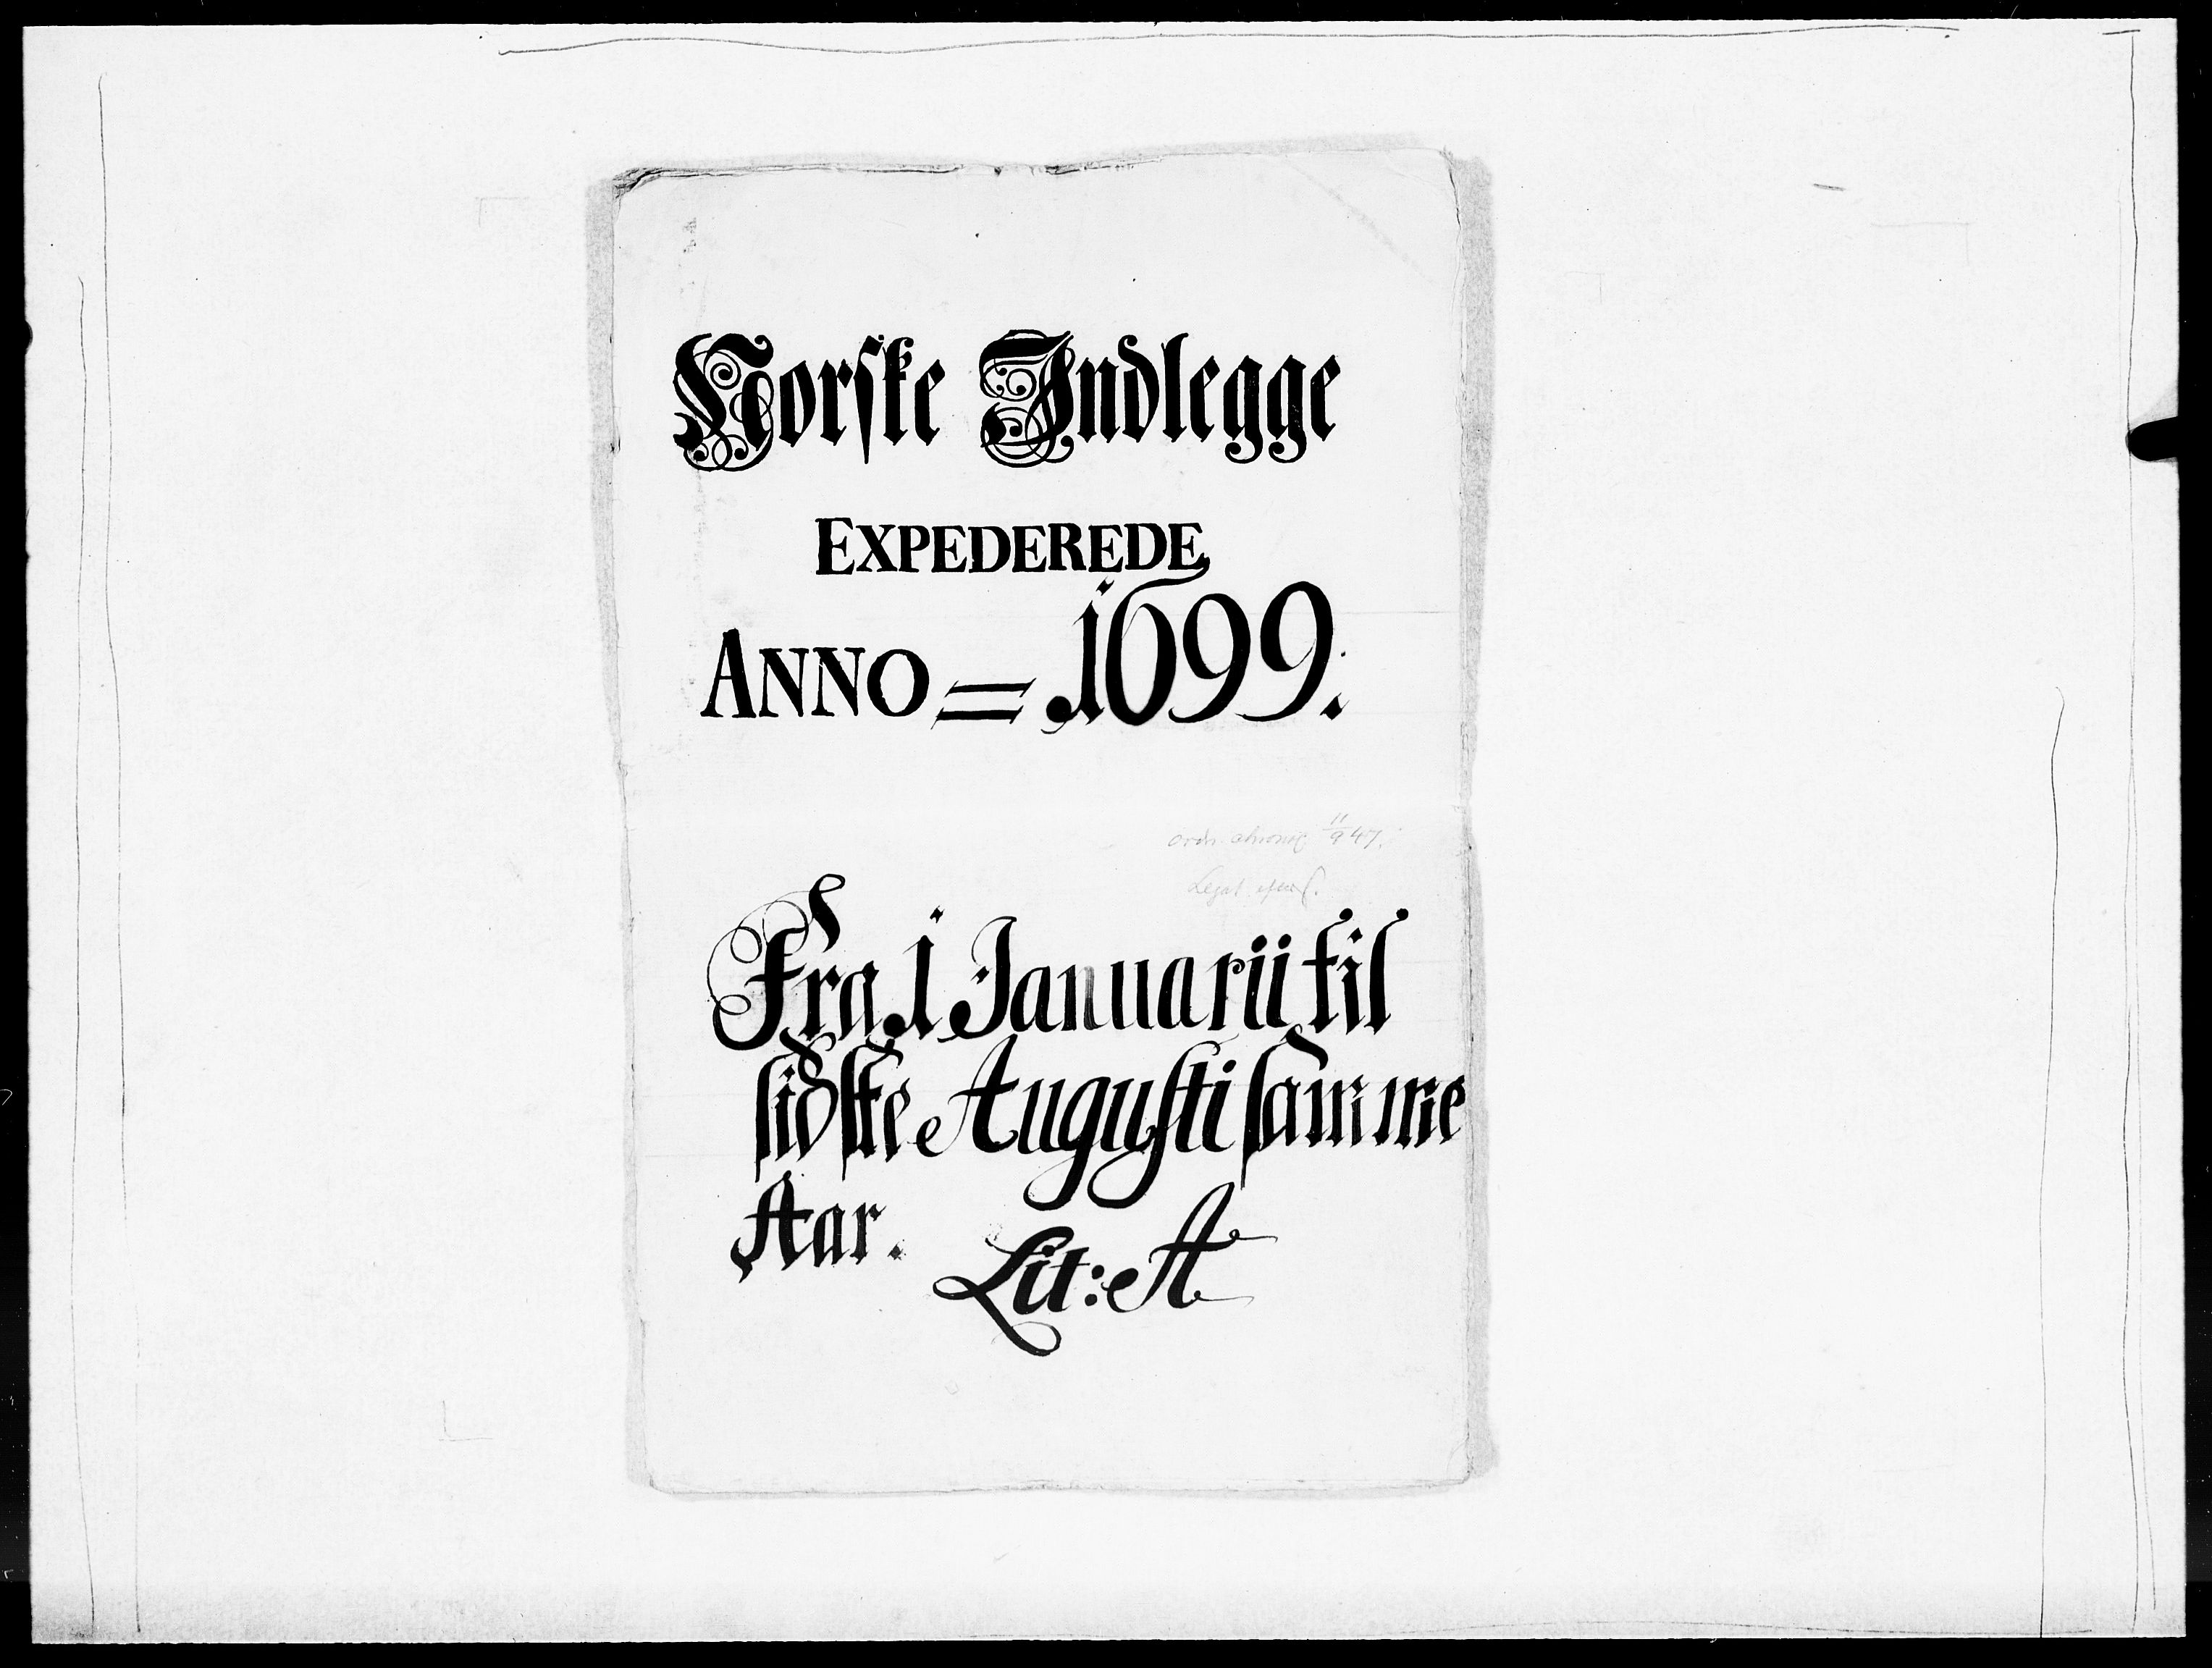 Norske Indlegge
EXPEDEREDE
ANNO = 1699.
ordn. chronog 11/9 47.
Legat
Fra 1 Januarii til
sidste Augusti samme
Aar.
Lit: A